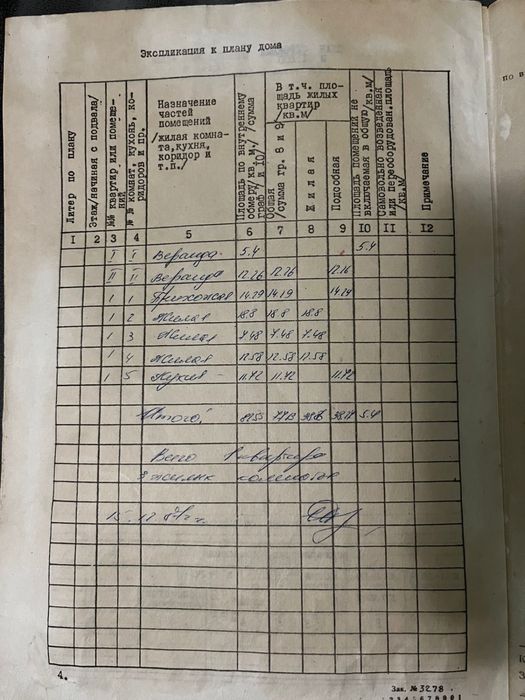 Экспликация к плану дома
Литер по плану
Этаж/начиная с подвала/
№№ квартир или помеще-
ний
№ № комнат, кухонь, ко-
ридоров и пр.
Назначение
частей
помещений
/жилая комна-
та,кухня,
коридор и
т.п./
Площадь по внутреннему
обмеру/кв.м./ /сумма
граф 7 и 10/
В т.ч. пло-
щадь жилых
квартир
/кв.м/
Общая
/сумма гр. 8 и 9/
Жилая
Подсобная
Площадь помещений не
включаемая в общую/кв.м/
Самовольно возведенная
или переоборудован.площадь
/кв.м/
Примечание
1 2 3 4 5 6 7 8 9 10 11 12
I I Веранда 5.4 5.4
II II Веранда 12.26 12.26
1 1 Прихожая 14.19
1 2 Жилая 18.8 18.8 18.8
1 3 Жилая 7.48 7.48 7.48
1 4 Жилая 12.58 12.58 12.58
1 5 Кухня 11.72 11.72 11.72
Итого: 5.4
Всего 1 квартира
3 жилых комнаты
15.12
4.
Зак. № 3278